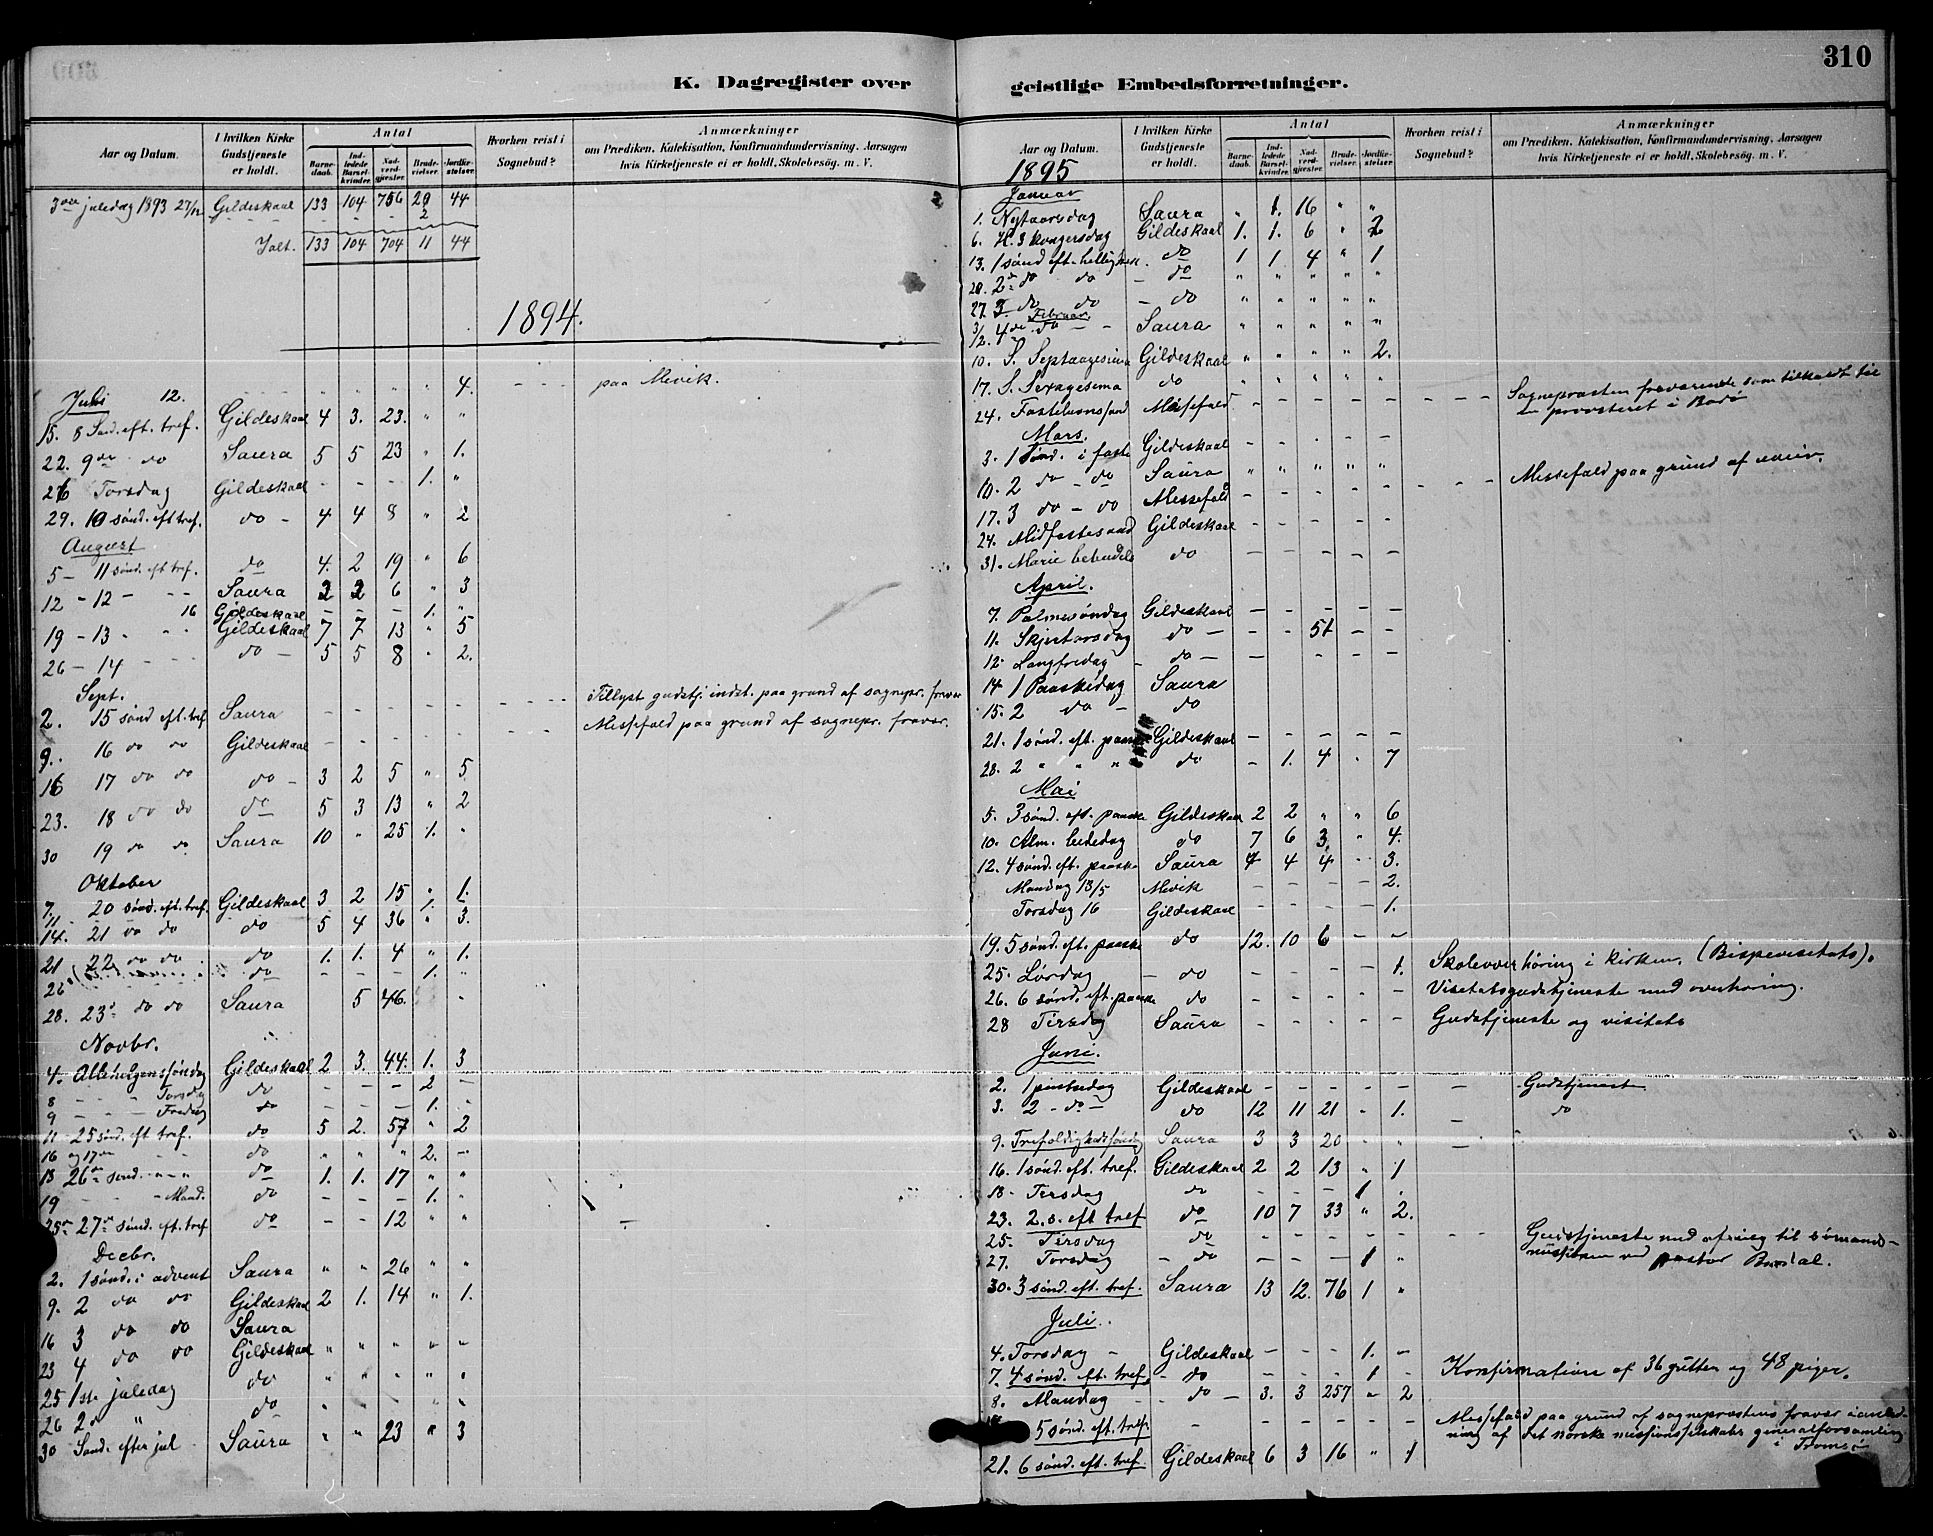 310
K. Dagregister over
Aar og Datum.
I hvilken Kirke Gudstjeneste er holdt.
Antal
Barnedaab. Indledede Barselkvinder. Nadverdgjæster. Brudevielser. Jordfæstelser.
Hvorhen reist i Sognebud?
Anmærkninger
om Prædiken, Katekisation, Konfirmandundervisning, Aarsagen
hvis Kirketjeneste ei er holdt, Skolebesøg. m. V.
juledag 1893 27/12 Gildeskaal 133 104 756 29 44
Ialt. 133 104 704 11 44
1894.
Juli 12. - - - - 4. - - - paa Mevik.
15. 8 Sønd. eft. tref. Gildeskaal 4 3. 23. " "
22. 9de do Saura 5 5 23 " 1.
26 Torsdag Gildeskaal - - - 1. "
29. 10 sønd. eft tref. do - 4 4 8 " 2
August
5 - 11 sønd. eft tref. do 4. 2 19 " 6
12 - 12 - - - Saura 2 2 6 " 3
16 Gildeskaal - - - 1. "
19 - 13 - - - Gildeskaal 7 7 13 " 5
26 - 14 - - - do - 5 5 8 " 2.
Sept.
2. 15 sønd eft. tref Saura - - - - - Tillyst gudstj. indst. paa grund af sognepr. fravær
9. 16 do do Gildeskaal - - - - - Messefald paa grund af sognepr. fravær.
16 17 do do do - 3 2 5 " 5.
23. 18 do do do 5 3 13 " 2
30 19 do do Saura 10 " 25 1. "
Oktober
7. 20 sønd. eft. tref. Gildeskaal 3 2 15 " 1.
11. 1.
14. 21 do do do 5 4 36 " 3.
21 22 do do do 1. 1. 4 " 1.
26 do - - - 1. "
28. 23 do do Saura 5 46. "
Novbr.
4. Allehelgenssøndag Gildeskaal 2 3. 44. 1. 3
8 - - - Torsdag do - - - 2 -
9 - - - Fredag do - - - 1. -
11 25 sønd. eft tref. do 5 2. 57 " 2
16 og 17de - - do " " " 2. -
18 26de sønd. - - - do 1. 1. 17 " "
19 - - - Mand. do - - - 1. "
25de 27de sønd. eft. tref do - - 12 " "
Decbr.
2. 1 sønd. i advent Saura " " 26 " "
9. 2 do do Gildeskaal 2 1. 14 " 1.
16 3 do do Saura
23 4 do do Gildeskaal " " " " "
25 1ste juledag do " " " " "
26 2de " do " " " " "
30 Sønd. efter jul Saura " " 23 " 3
geistlige Embedsforretninger.
Aar og Datum.
I hvilken Kirke Gudstjeneste er holdt.
Antal
Barnedaab. Indledede Barselkvinder. Nadverdgjæster. Brudevielser. Jordfæstelser.
Hvorhen reist i Sognebud?
Anmærkninger
om Prædiken, Katekisation, Konfirmandundervisning, Aarsagen
hvis Kirketjeneste ei er holdt, Skolebesøg. m. V.
1895
Januar
1. Nytaarsdag Saura " 1. 16 " "
6. H. 3 kongersdag Gildeskaal 1. 1. 6 " 2
13. 1 sønd eft. helligtrek. do 1 1 4 " 1
20. 2de do do - do " " " " "
27. 3 do do - do " " " " "
Februar
3/2. 4de do - - Saura " " " " "
10. S. Septuagesima Gildeskaal " " " " 2.
17. S. Sexagesima do " " " " "
24. Fastelavnssønd Messefald. - - - - - - - - Sognepræsten fraværende som tilkaldt til
provsteret i Bodø
Mars.
3. 1 sønd. i faste Gildeskaal - - - - -
10. 2 do - do Saura " " " " "
17. 3 do - do Messefald - - - - - - - - Messefald paa grund af uveir.
24. Midfastesønd Gildeskaal - - - - -
31. Marie bebudels do - - - - -
April.
7. Palmesøndag Gildeskaal - - - - -
11. Skjærtorsdag do - - - 51 - -
12. Langfredag - do - - - - - -
14 1 Paaskedag Saura
15. 2 do - do
21. 1 sønd. eft. paaske Gildeskaal - - - - -
28. 2 " " " do - 1. 4 - 7
Mai
5. 3 sønd. eft. paaske Gildeskaal 2 2 " " 6
10. Alm. bededag do 7 6 3 " 4.
12. 4 sønd. eft. paaske Saura 4 4 4 " 3.
Mandag 13/5 Mevik - - - - 2.
Torsdag 16 Gildeskaal - - - - 1.
19. 5 sønd. eft. paaske do 12. 10 6 - -
25. Lørdag - do - - - - 1. Skoleoverhøring i kirken. (Bispevisitats).
26. 6 sønd. eft. paaske do - - - - - Visitatsgudstjeneste med overhøring.
28 Tirsdag Saura - - - - - Gudstjeneste og visitats
Juni.
2. 1 pinsedag Gildeskaal - - - - - - Gudstjenest
3. 2 - do - do 12 11 21 " 1. - do
9. Trefoldighedssøndag Saura 3 3 20 " " -
16. 1 sønd. eft. tref. Gildeskaal 2 2 13 " 1
18 - Tirsdag do - - - 1 .
23. 2. s. eft tref do 10 7 33 " 2.
25. Tirsdag do - - - - - - - Gudstjeneste med ofring til sømands-
27. Torsdag - do - - - 1 " missionen ved pastor Bardal.
30. 3 sønd. eft. tref. Saura 13 12. 76 1 "
Juli.
4. Torsdag - Gildeskaal - - - 1. -
7. 4 sønd. eft. tref. - do - - - 1 - Konfirmation af 36 gutter og 48 piger.
8. Mandag - do - 3. 3 257 " 2
5 sønd. eft. tref. - - - - - Messefald paa grund af sognepræstens fravær i anledning
af det norske missionsselskabs generalforsamling
i Tromsø
21. 6 sønd. eft. tref. Gildeskaal 6 3 16 " 1